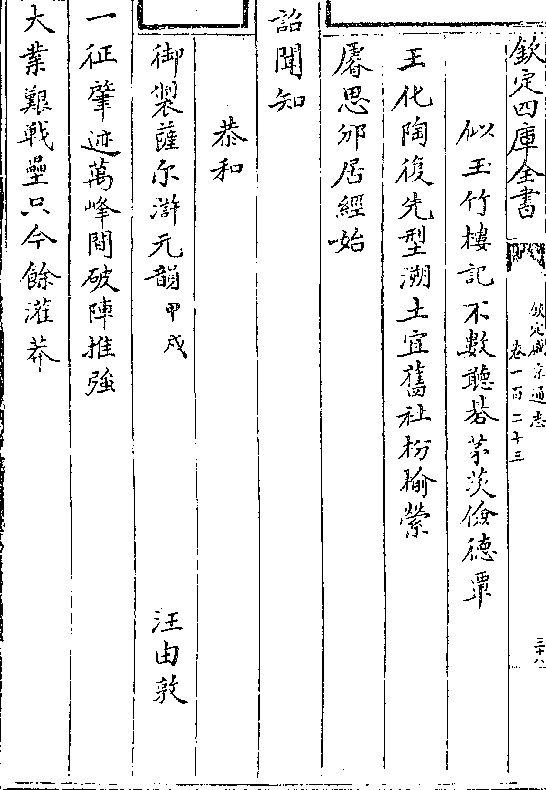 欽定四庫全書
欽定盛京通志
卷一百二十三
三十八
似玉竹樓記不數聽碁茅茨儉德覃
王化陶復先型溯土宜舊社枌榆縈
睿思邠居經始
詔聞知
恭和
御製薩尔滸元韻甲戌
汪由敦
一征肇迹萬峰間破陣推強
大業艱戰壘只今餘灌莽